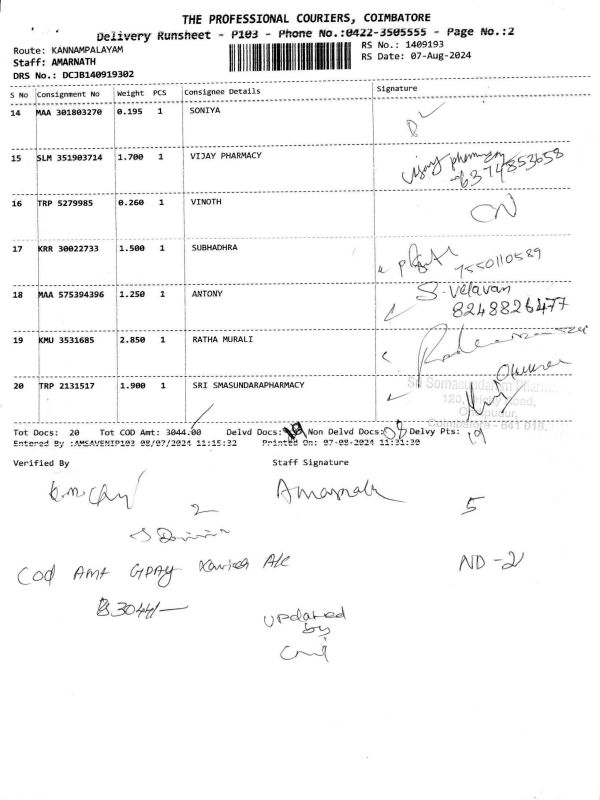 THE PROFESSIONAL COURIERS, COIMBATORE
Delivery Runsheet - P103 - Phone No.:0422-3505555 - Page No.:2
Route: KANNAMPALAYAM RS No.: 1409193
Staff: AMARNATH RS Date: 07-Aug-2024
DRS No.: DCJB140919302
S No Consignment No Weight PCS Consignee Details Signature
14 MAA 301803270 0.195 1 SONIYA
15 SLM 351903714 1.700 1 VIJAY PHARMACY vijay pharmacy
6374853658
16 TRP 5279985 0.260 1 VINOTH
17 KRR 30022733 1.500 1 SUBHADHRA
7550110589
18 MAA 575394396 1.250 1 ANTONY S. velavan
8248826477
19 KMU 3531685 2.850 1 RATHA MURALI
20 TRP 2131517 1.900 1 SRI SMASUNDARAPHARMACY
Sri Somasundaram
Coimbatore - 641 018
Tot Docs: 20 Tot COD Amt: 3044.00 Delvd Docs: Non Delvd Docs: Delvy Pts: 19
Entered By :AMSAVENIP103 08/07/2024 11:15:32 Printed On: 07-08-2024 11:31:30
Verified By Staff Signature
Amarnath
2 5
Cod Amt GPAY A/C ND -2
3044/-
updated
by